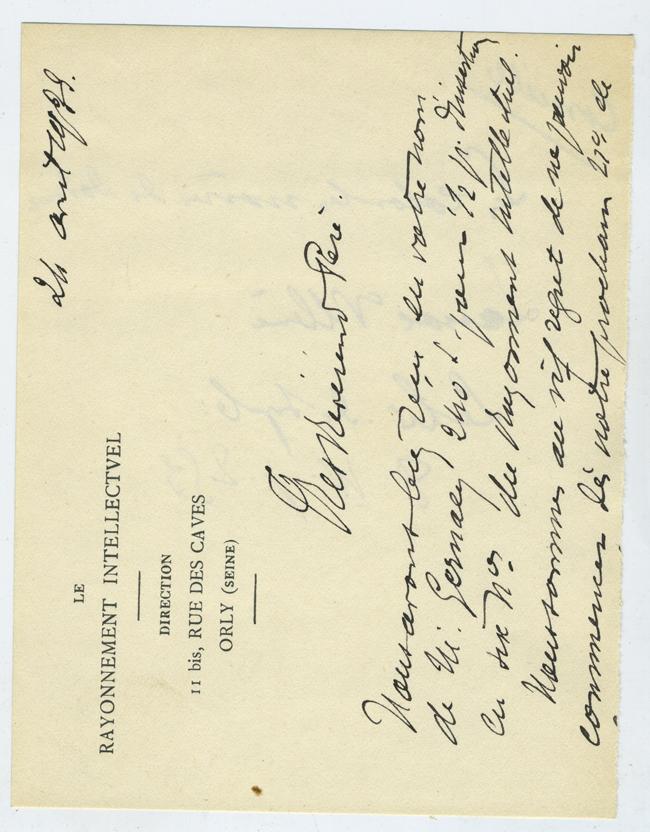 LE
RAYONNEMENT INTELLECTVEL
DIRECTION
11 bis, RUE DES CAVES
ORLY (SEINE)
24 avril 1939.
Très Révérend Père
Nous avons bien reçu en votre nom
de M. Gernaey 240 f pour 1/2 p. d'insertion
en six Nos du Rayonment Intellectuel.
Nous sommes au vif regret de ne pouvoir
commencer dès notre prochain No de